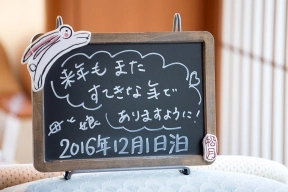 来年も また
すてきな 年で
ありますように!
2016年12月1日泊